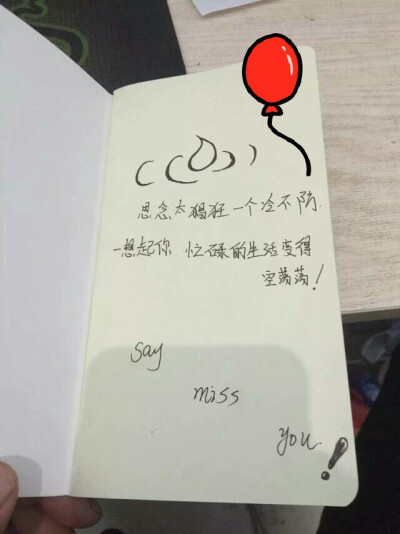 思念太猖狂一个冷不防.
一想起你.忙碌的生活变得
空荡荡!
say
miss
you!